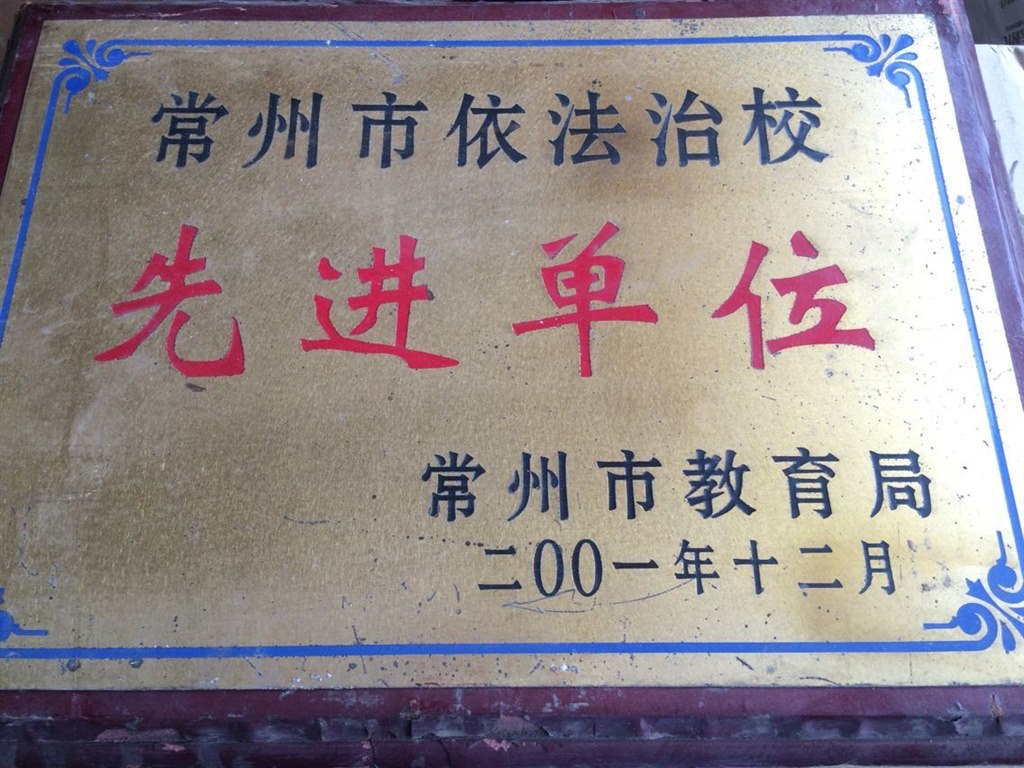 常州市依法治校
先进单位
常州市教育局
二00一年十二月